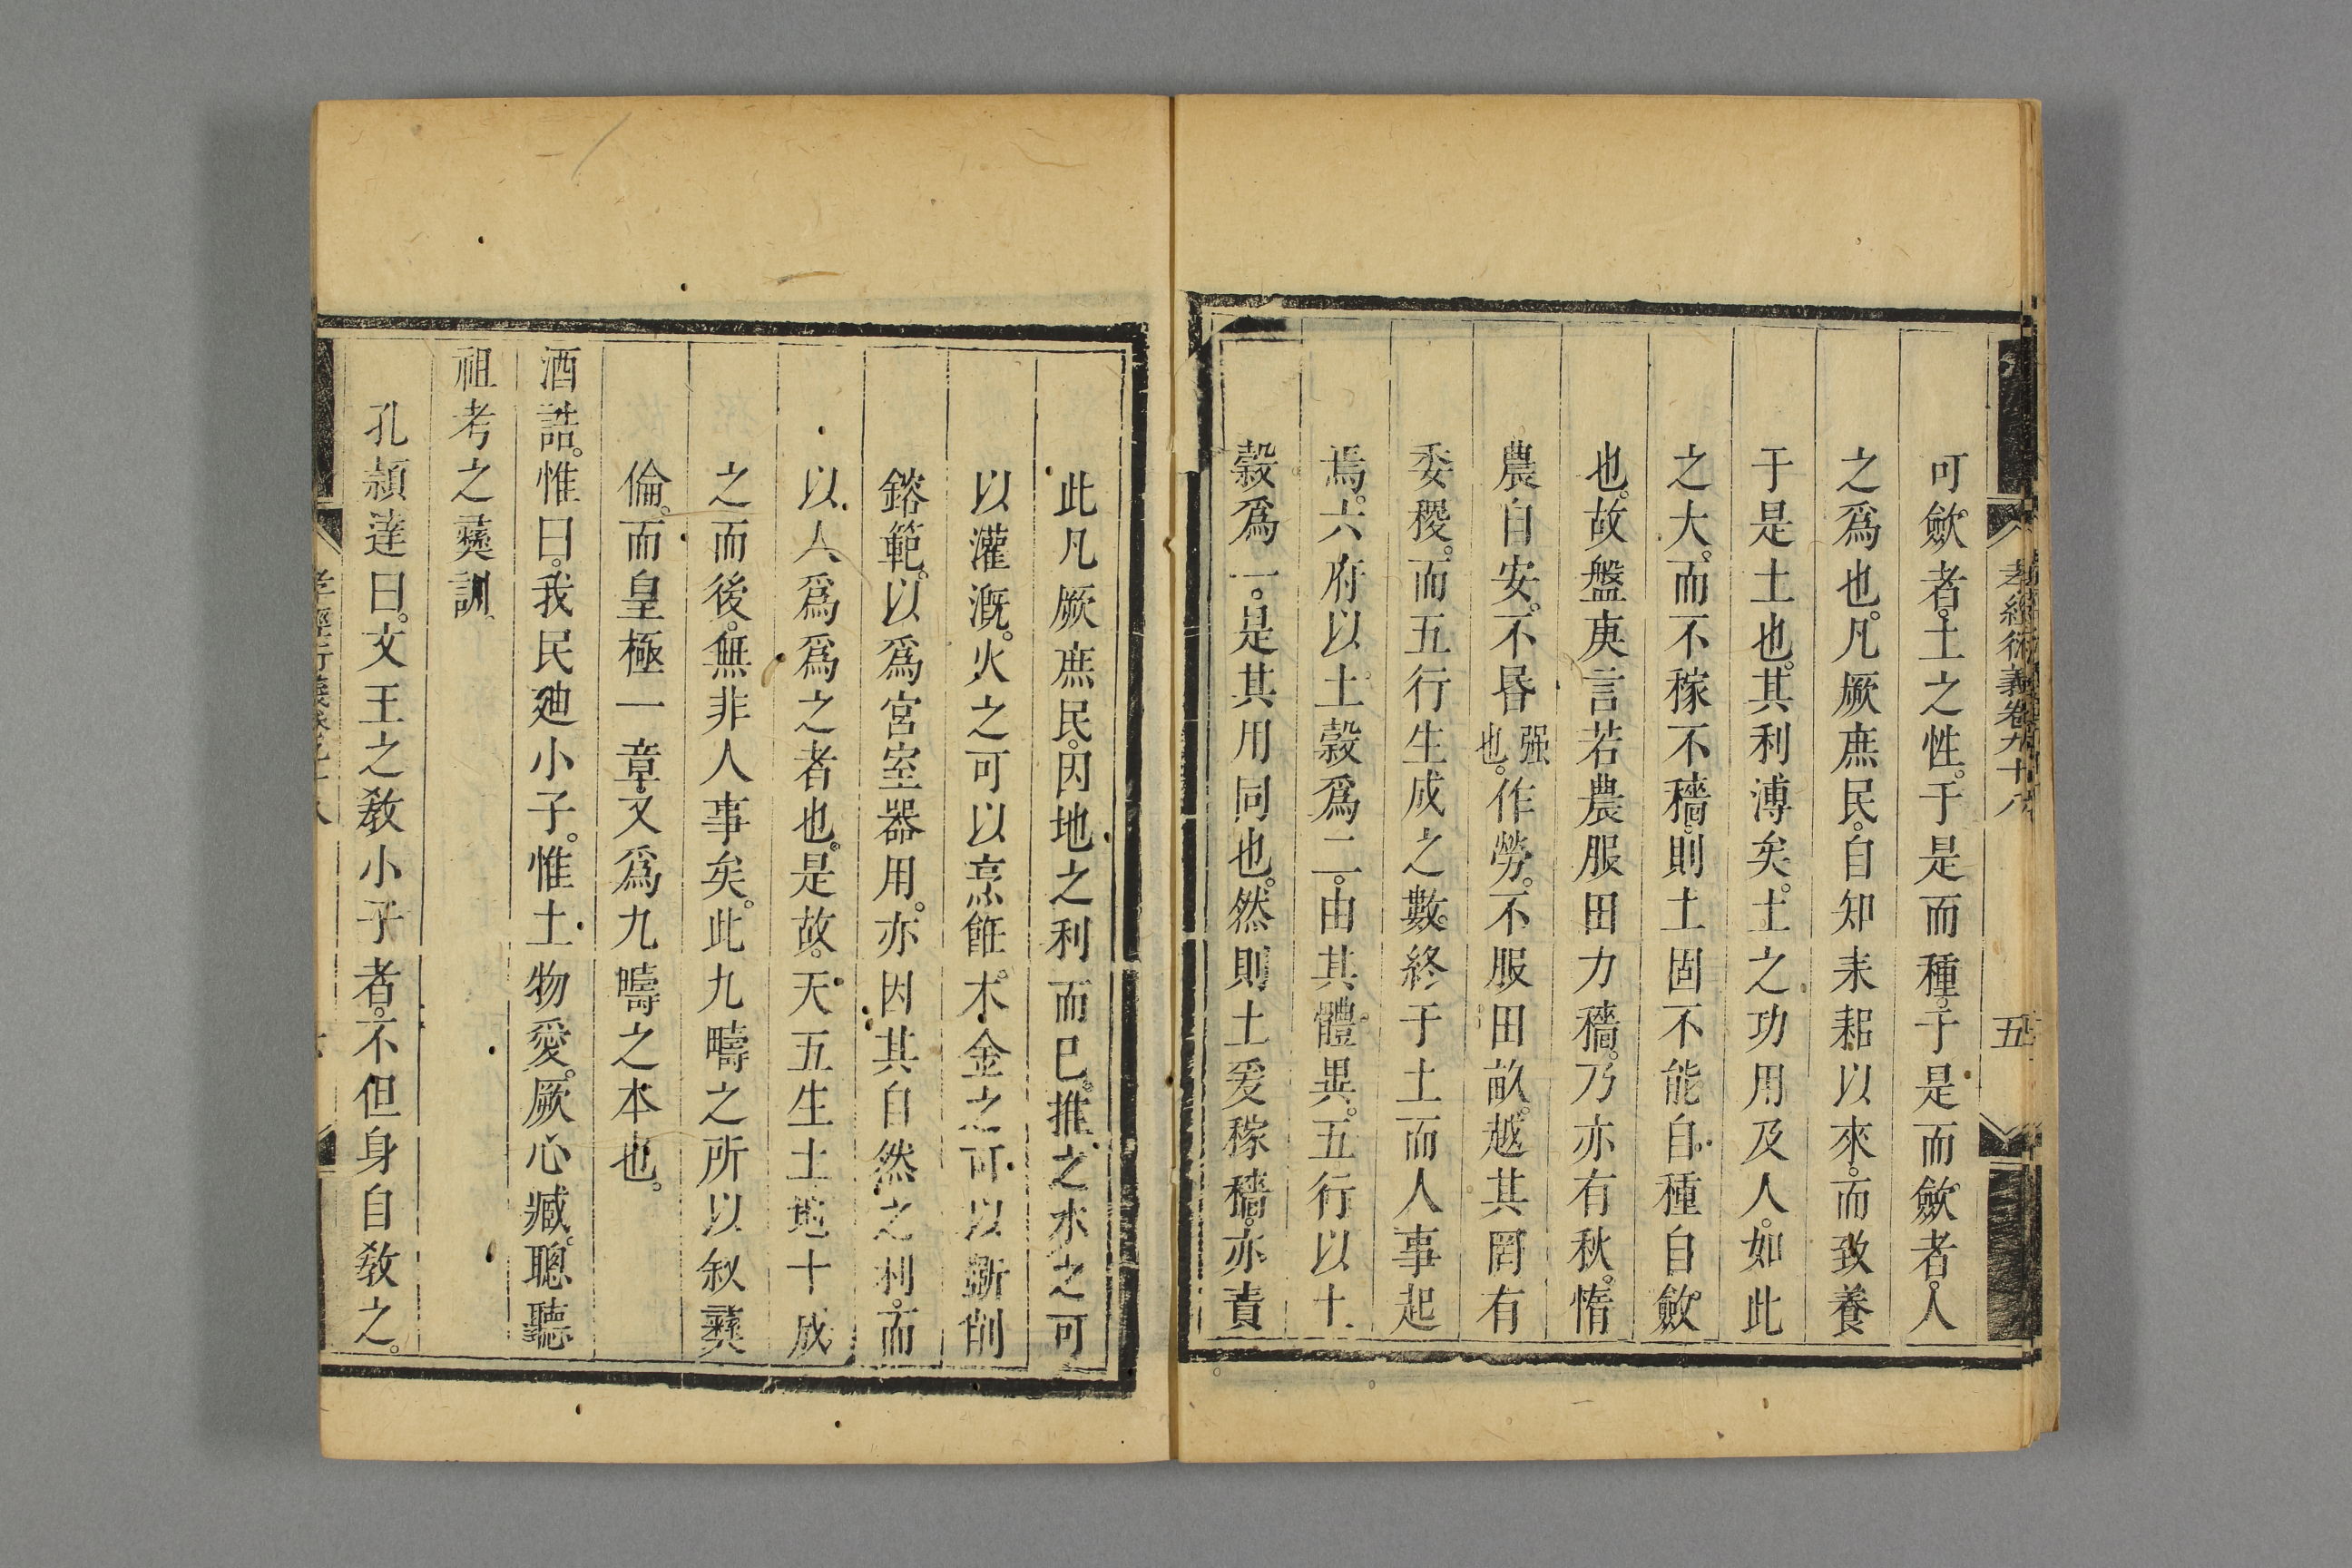 孝經衍義卷九十八
五
可斂者。土之性。于是而種。于是而斂者。人
之爲也。凡厥庶民。自知耒耜以來。而致養
于是土也。其利溥矣。土之功用及人。如此
之大。而不稼不穡。則土固不能自種自斂
也。故盤庚言若農服田力穡。乃亦有秋。惰
農自安。不昬强也。作勞。不服田畝。越其罔有
委稷。而五行生成之數。終于土而人事起
焉。六府以土穀爲二。由其體異。五行以土
穀爲一。是其用同也。然則土爰稼穡。亦責
此凡厥庶民。因地之利而已。推之水之可
以灌溉。火之可以烹飪。木金之可以斲削
鎔範。以爲宮室器用。亦因其自然之利。而
以人爲爲之者也。是故。天五生土地十成
之而後。無非人事矣。此九疇之所以叙彞
倫。而皇極一章。又爲九疇之本也。
酒誥。惟曰。我民廸小子。惟土物愛。厥心臧。聰聽
祖考之彞訓
孔頴達曰。文王之敎小子者。不但身自敎之。
孝經衍義卷九十八